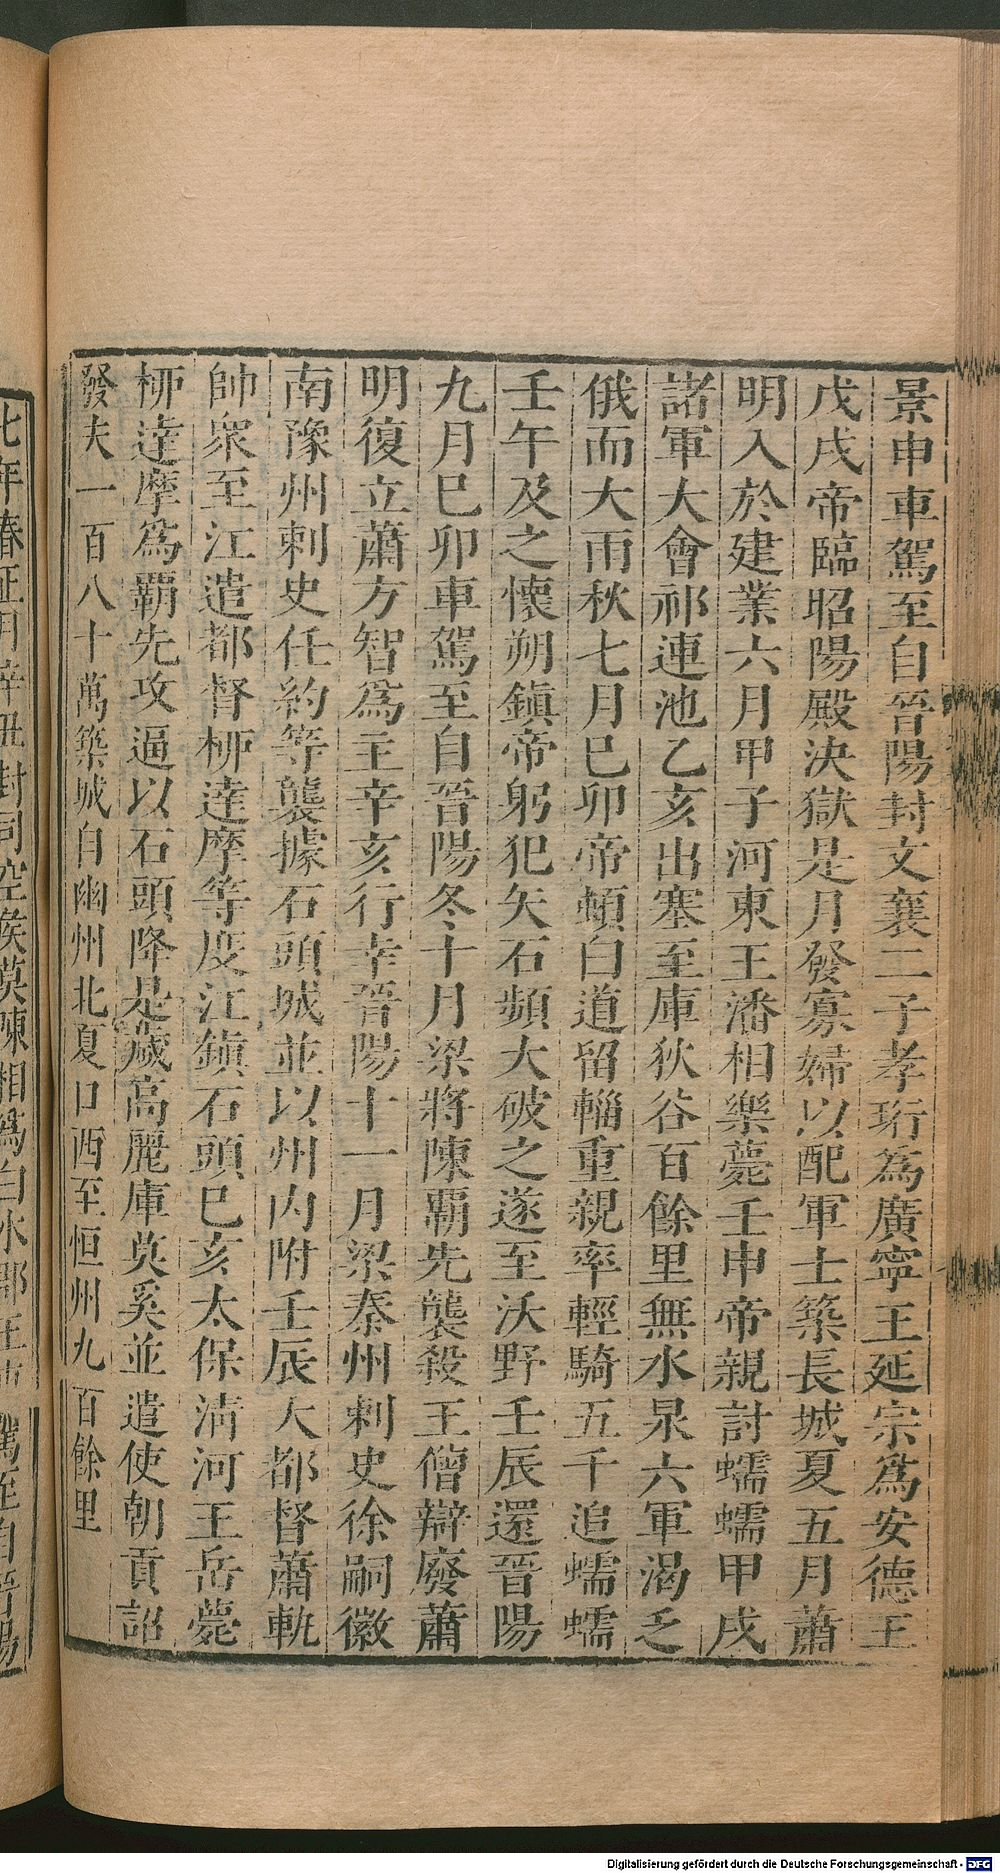 景申車駕至自晉陽封文襄二子孝珩爲廣寧王延宗爲安德王
戊戌帝臨昭陽殿決獄是月發寡婦以配軍士築長城夏五月蕭
明入於建業六月甲子河東王潘相樂薨壬申帝親討蠕蠕甲戌
諸軍大會祁連池乙亥出塞至庫狄谷百餘里無水泉六軍渴乏
俄而大雨秋七月巳卯帝頓白道留輜重親率輕騎五千追蠕蠕
壬午及之懷朔鎮帝躬犯矢石頻大破之遂至沃野壬辰還晉陽
九月巳卯車駕至自晉陽冬十月梁將陳霸先襲殺王僧辯廢蕭
明復立蕭方智爲主辛亥行幸晉陽十一月梁秦州刺史徐嗣徽
南豫州刺史任約等襲據石頭城並以州內附壬辰大都督蕭軌
帥眾至江遣都督柳達摩等度江鎮石頭巳亥太保清河王岳薨
柳達摩爲霸先攻逼以石頭降是歲高麗庫莫奚並遣使朝貢詔
發夫一百八十萬築城自幽州北夏口西至恒州九百餘里
七年春正月辛丑封司空侯莫陳相爲白水郡王車駕至自晉陽
Digitalisierung gefördert durch die Deutsche Forschungsgemeinschaft - DFG